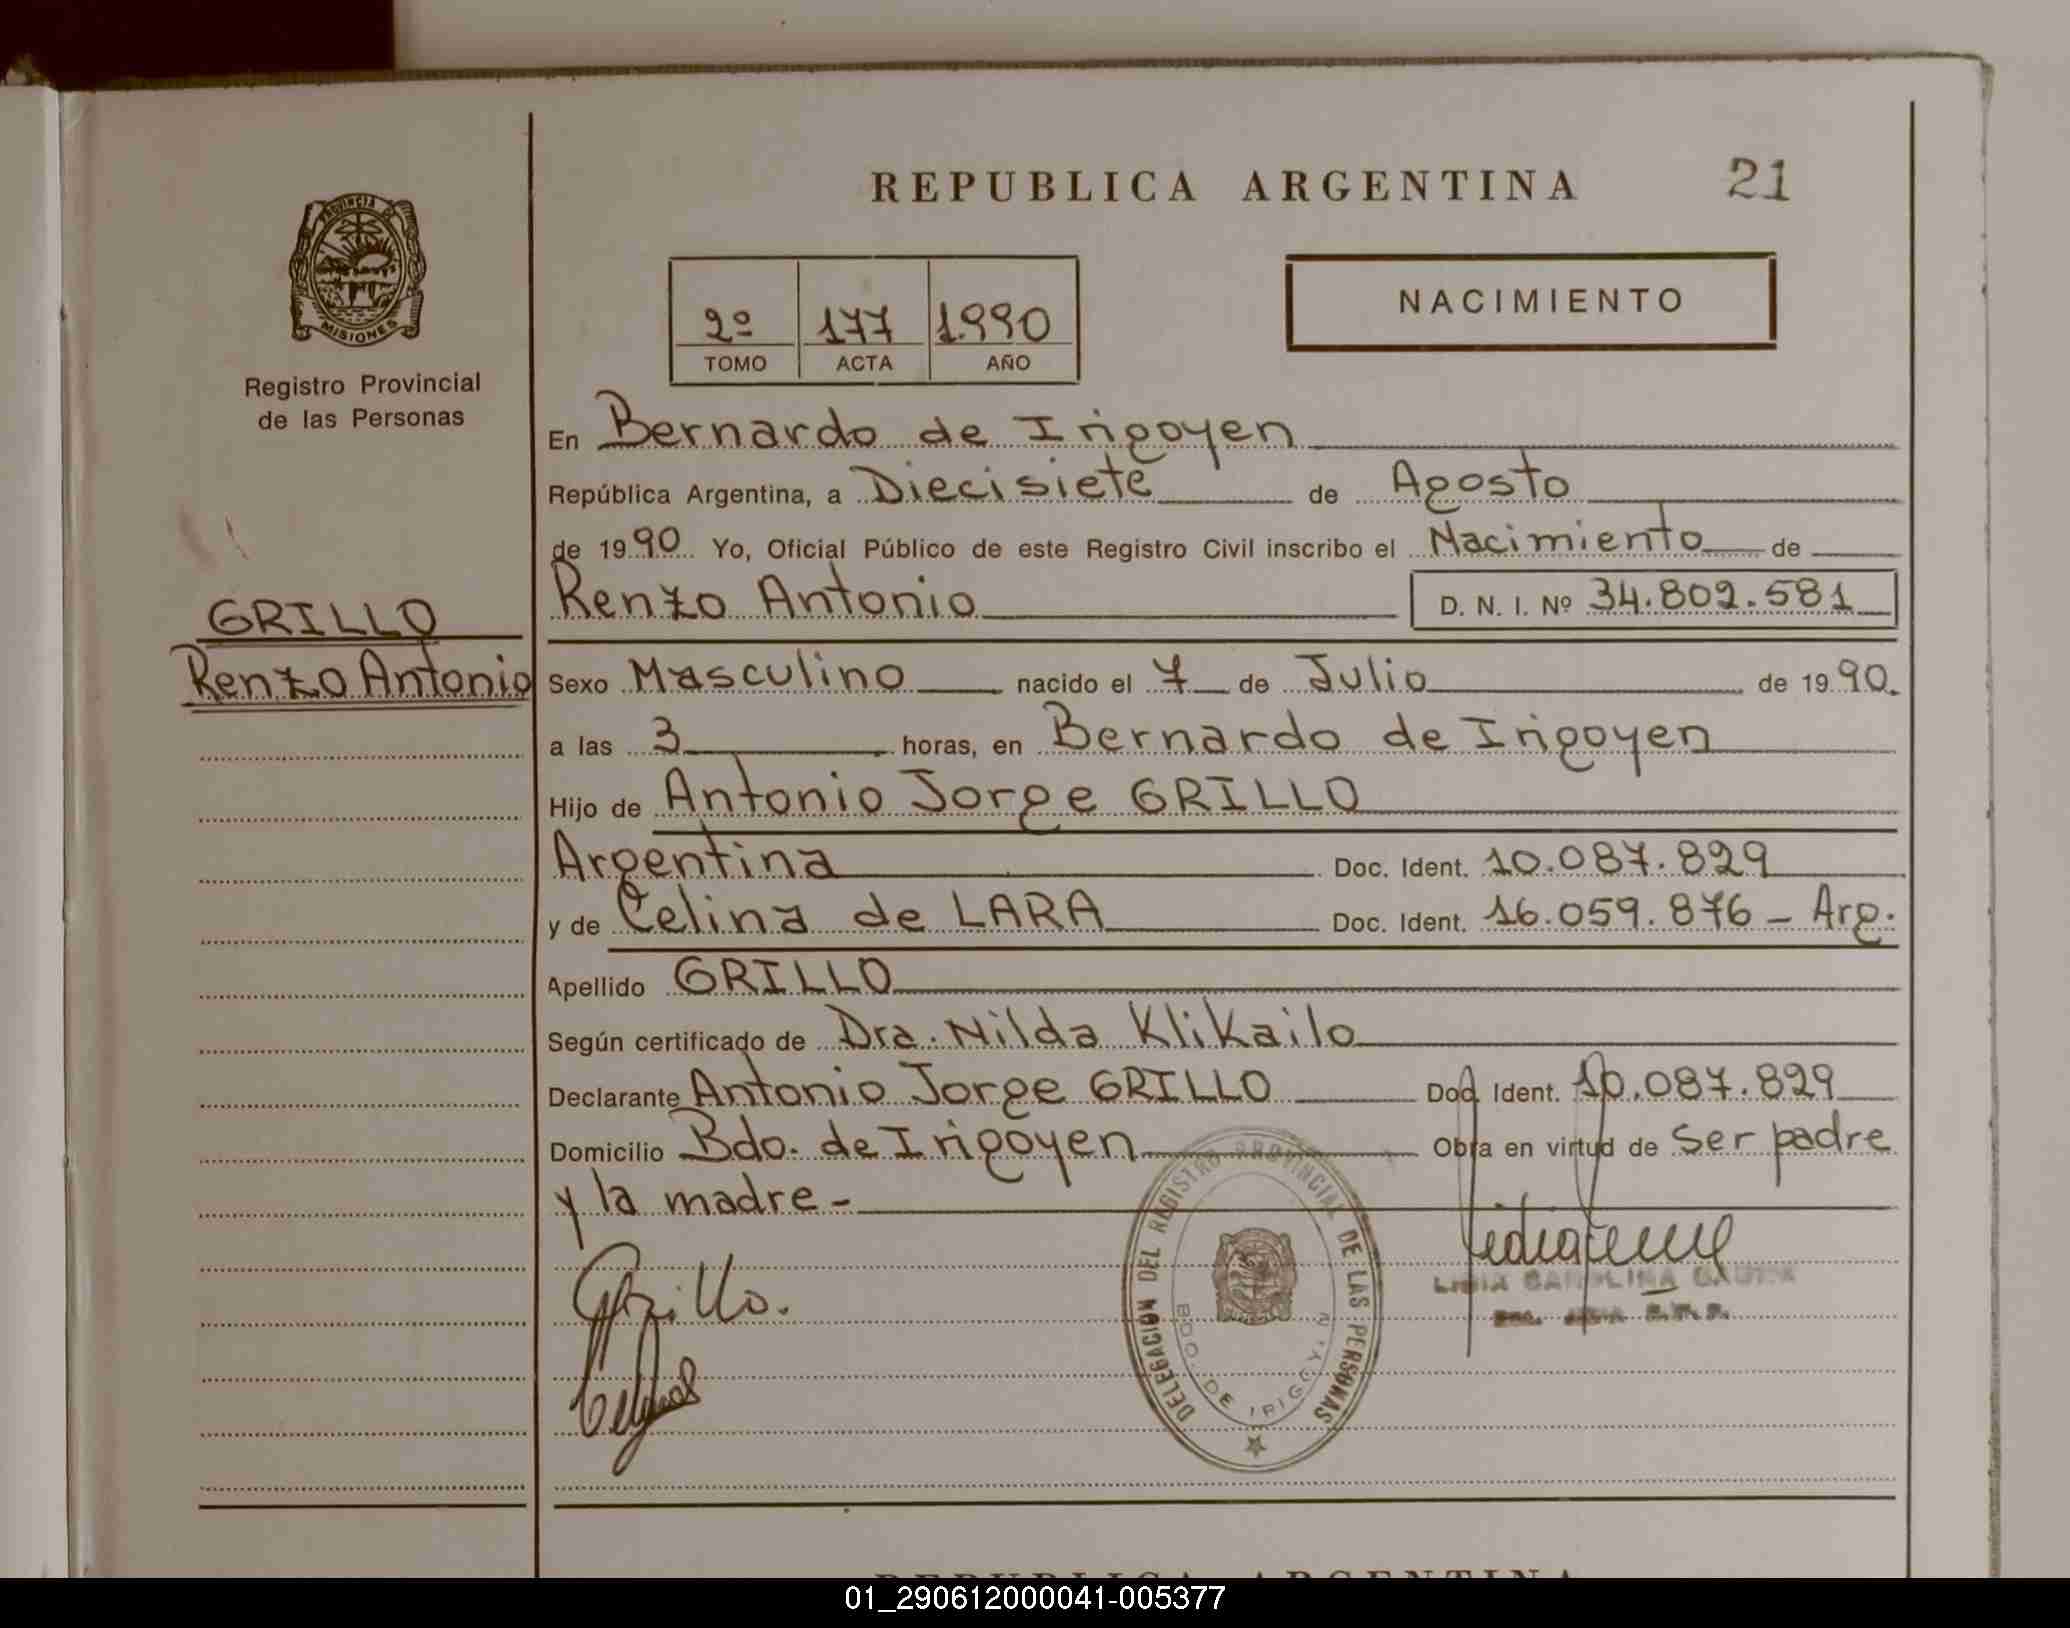 REPUBLICA ARGENTINA 21
PROVINCIA DE
MISIONES
Registro Provincial
de las Personas
2º 177 1.990
TOMO ACTA AÑO
NACIMIENTO
En Bernardo de Irigoyen
República Argentina, a Diecisiete de Agosto
de 1990 Yo, Oficial Público de este Registro Civil inscribo el Nacimiento de
Renzo Antonio D. N. I. Nº 34.802.581
GRILLO
Renzo Antonio
Sexo Masculino nacido el 7 de Julio de 1990.
a las 3 horas, en Bernardo de Irigoyen
Hijo de Antonio Jorge GRILLO
Argentina Doc. Ident. 10.087.829
y de Celina de LARA Doc. Ident. 16.059.876 - Arg.
Apellido GRILLO
Según certificado de Dra. Nilda Klikailo
Declarante Antonio Jorge GRILLO Doc. Ident. 10.087.829
Domicilio Bdo. de Irigoyen Obra en virtud de ser padre
y la madre -
Grillo.
DELEGACION DEL REGISTRO PROVINCIAL DE LAS PERSONAS
BDO. DE IRIGOYEN
LIDIA CAROLINA
REPUBLICA ARGENTINA
01_290612000041-005377